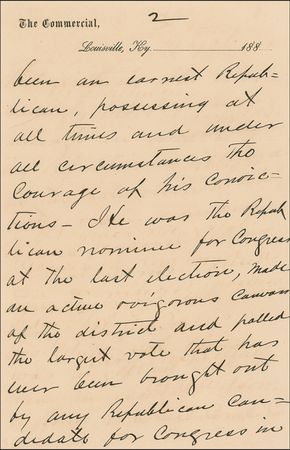 2
The Commercial,
Louisville, Ky. 188
been an earnest Repub=
lican, possessing at
all times and under
all circumstances the
Courage of his convic=
tions - He was the Repub
lican nominee for Congress
at the last election, made
an active & vigorous canvass
of the district and polled
the largest vote that has
ever been brought out
by any Republican can=
didate for Congress in